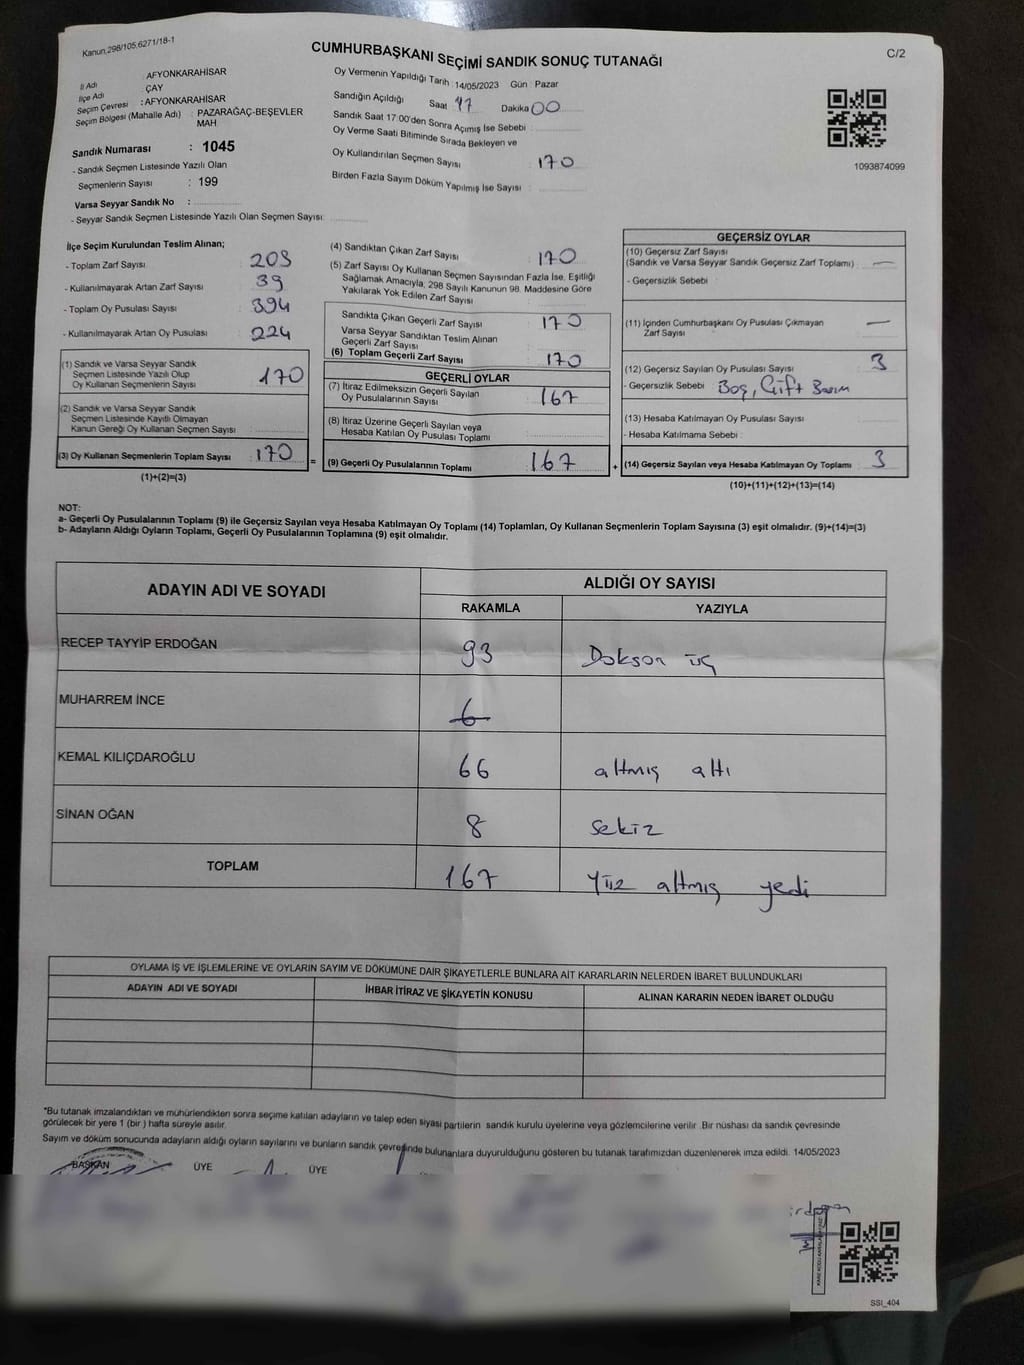 Kanun,298/105,6271/18-1
CUMHURBAŞKANI SEÇİMİ SANDIK SONUÇ TUTANAĞI
C/2
İl Adı : AFYONKARAHİSAR
İlçe Adı : ÇAY
Seçim Çevresi : AFYONKARAHİSAR
Seçim Bölgesi (Mahalle Adı) : PAZARAĞAÇ-BEŞEVLER
MAH.
Sandık Numarası : 1045
- Sandık Seçmen Listesinde Yazılı Olan
Seçmenlerin Sayısı : 199
Varsa Seyyar Sandık No :
- Seyyar Sandık Seçmen Listesinde Yazılı Olan Seçmen Sayısı:
Oy Vermenin Yapıldığı Tarih : 14/05/2023 Gün : Pazar
Sandığın Açıldığı Saat 17 Dakika 00
Sandık Saat 17:00'den Sonra Açımış İse Sebebi :
Oy Verme Saati Bitiminde Sırada Bekleyen ve
Oy Kullandırılan Seçmen Sayısı : 170
Birden Fazla Sayım Döküm Yapılmış İse Sayısı :
1093874099
İlçe Seçim Kurulundan Teslim Alınan;
- Toplam Zarf Sayısı : 209
- Kullanılmayarak Artan Zarf Sayısı : 39
- Toplam Oy Pusulası Sayısı : 394
- Kullanılmayarak Artan Oy Pusulası : 224
(1) Sandık ve Varsa Seyyar Sandık
Seçmen Listesinde Yazılı Olup
Oy Kullanan Seçmenlerin Sayısı : 170
(2) Sandık ve Varsa Seyyar Sandık
Seçmen Listesinde Kayıtlı Olmayan
Kanun Gereği Oy Kullanan Seçmen Sayısı :
(3) Oy Kullanan Seçmenlerin Toplam Sayısı : 170
(1)+(2)=(3)
(4) Sandıktan Çıkan Zarf Sayısı : 170
(5) Zarf Sayısı Oy Kullanan Seçmen Sayısından Fazla İse, Eşitliği
Sağlamak Amacıyla, 298 Sayılı Kanunun 98. Maddesine Göre
Yakılarak Yok Edilen Zarf Sayısı :
Sandıkta Çıkan Geçerli Zarf Sayısı : 170
Varsa Seyyar Sandıktan Teslim Alınan
Geçerli Zarf Sayısı :
(6) Toplam Geçerli Zarf Sayısı : 170
GEÇERLİ OYLAR
(7) İtiraz Edilmeksizin Geçerli Sayılan
Oy Pusulalarının Sayısı : 167
(8) İtiraz Üzerine Geçerli Sayılan veya
Hesaba Katılan Oy Pusulası Toplamı :
= (9) Geçerli Oy Pusulalarının Toplamı : 167 +
GEÇERSİZ OYLAR
(10) Geçersiz Zarf Sayısı
(Sandık ve Varsa Seyyar Sandık Geçersiz Zarf Toplamı) : —
- Geçersizlik Sebebi :
(11) İçinden Cumhurbaşkanı Oy Pusulası Çıkmayan
Zarf Sayısı : —
(12) Geçersiz Sayılan Oy Pusulası Sayısı : 3
- Geçersizlik Sebebi : Boş, Çift Basım
(13) Hesaba Katılmayan Oy Pusulası Sayısı :
- Hesaba Katılmama Sebebi :
(14) Geçersiz Sayılan veya Hesaba Katılmayan Oy Toplamı : 3
(10)+(11)+(12)+(13)=(14)
NOT:
a- Geçerli Oy Pusulalarının Toplamı (9) ile Geçersiz Sayılan veya Hesaba Katılmayan Oy Toplamı (14) Toplamları, Oy Kullanan Seçmenlerin Toplam Sayısına (3) eşit olmalıdır. (9)+(14)=(3)
b- Adayların Aldığı Oyların Toplamı, Geçerli Oy Pusulalarının Toplamına (9) eşit olmalıdır.
ADAYIN ADI VE SOYADI
ALDIĞI OY SAYISI
RAKAMLA YAZIYLA
RECEP TAYYİP ERDOĞAN 93 Dokson üç
MUHARREM İNCE
KEMAL KILIÇDAROĞLU 66 altmış altı
SİNAN OĞAN 8 sekiz
TOPLAM 167 Yüz altmış yedi
OYLAMA İŞ VE İŞLEMLERİNE VE OYLARIN SAYIM VE DÖKÜMÜNE DAİR ŞİKAYETLERLE BUNLARA AİT KARARLARIN NELERDEN İBARET BULUNDUKLARI
ADAYIN ADI VE SOYADI İHBAR İTİRAZ VE ŞİKAYETİN KONUSU ALINAN KARARIN NEDEN İBARET OLDUĞU
*Bu tutanak imzalandıktan ve mühürlendikten sonra seçime katılan adayların ve talep eden siyasi partilerin sandık kurulu üyelerine veya gözlemcilerine verilir. Bir nüshası da sandık çevresinde
görülecek bir yere 1 (bir ) hafta süreyle asılır.
Sayım ve döküm sonucunda adayların aldığı oyların sayılarını ve bunların sandık çevresinde bulunanlara duyurulduğunu gösteren bu tutanak tarafımızdan düzenlenerek imza edildi. 14/05/2023
BAŞKAN ÜYE ÜYE
SSI_404